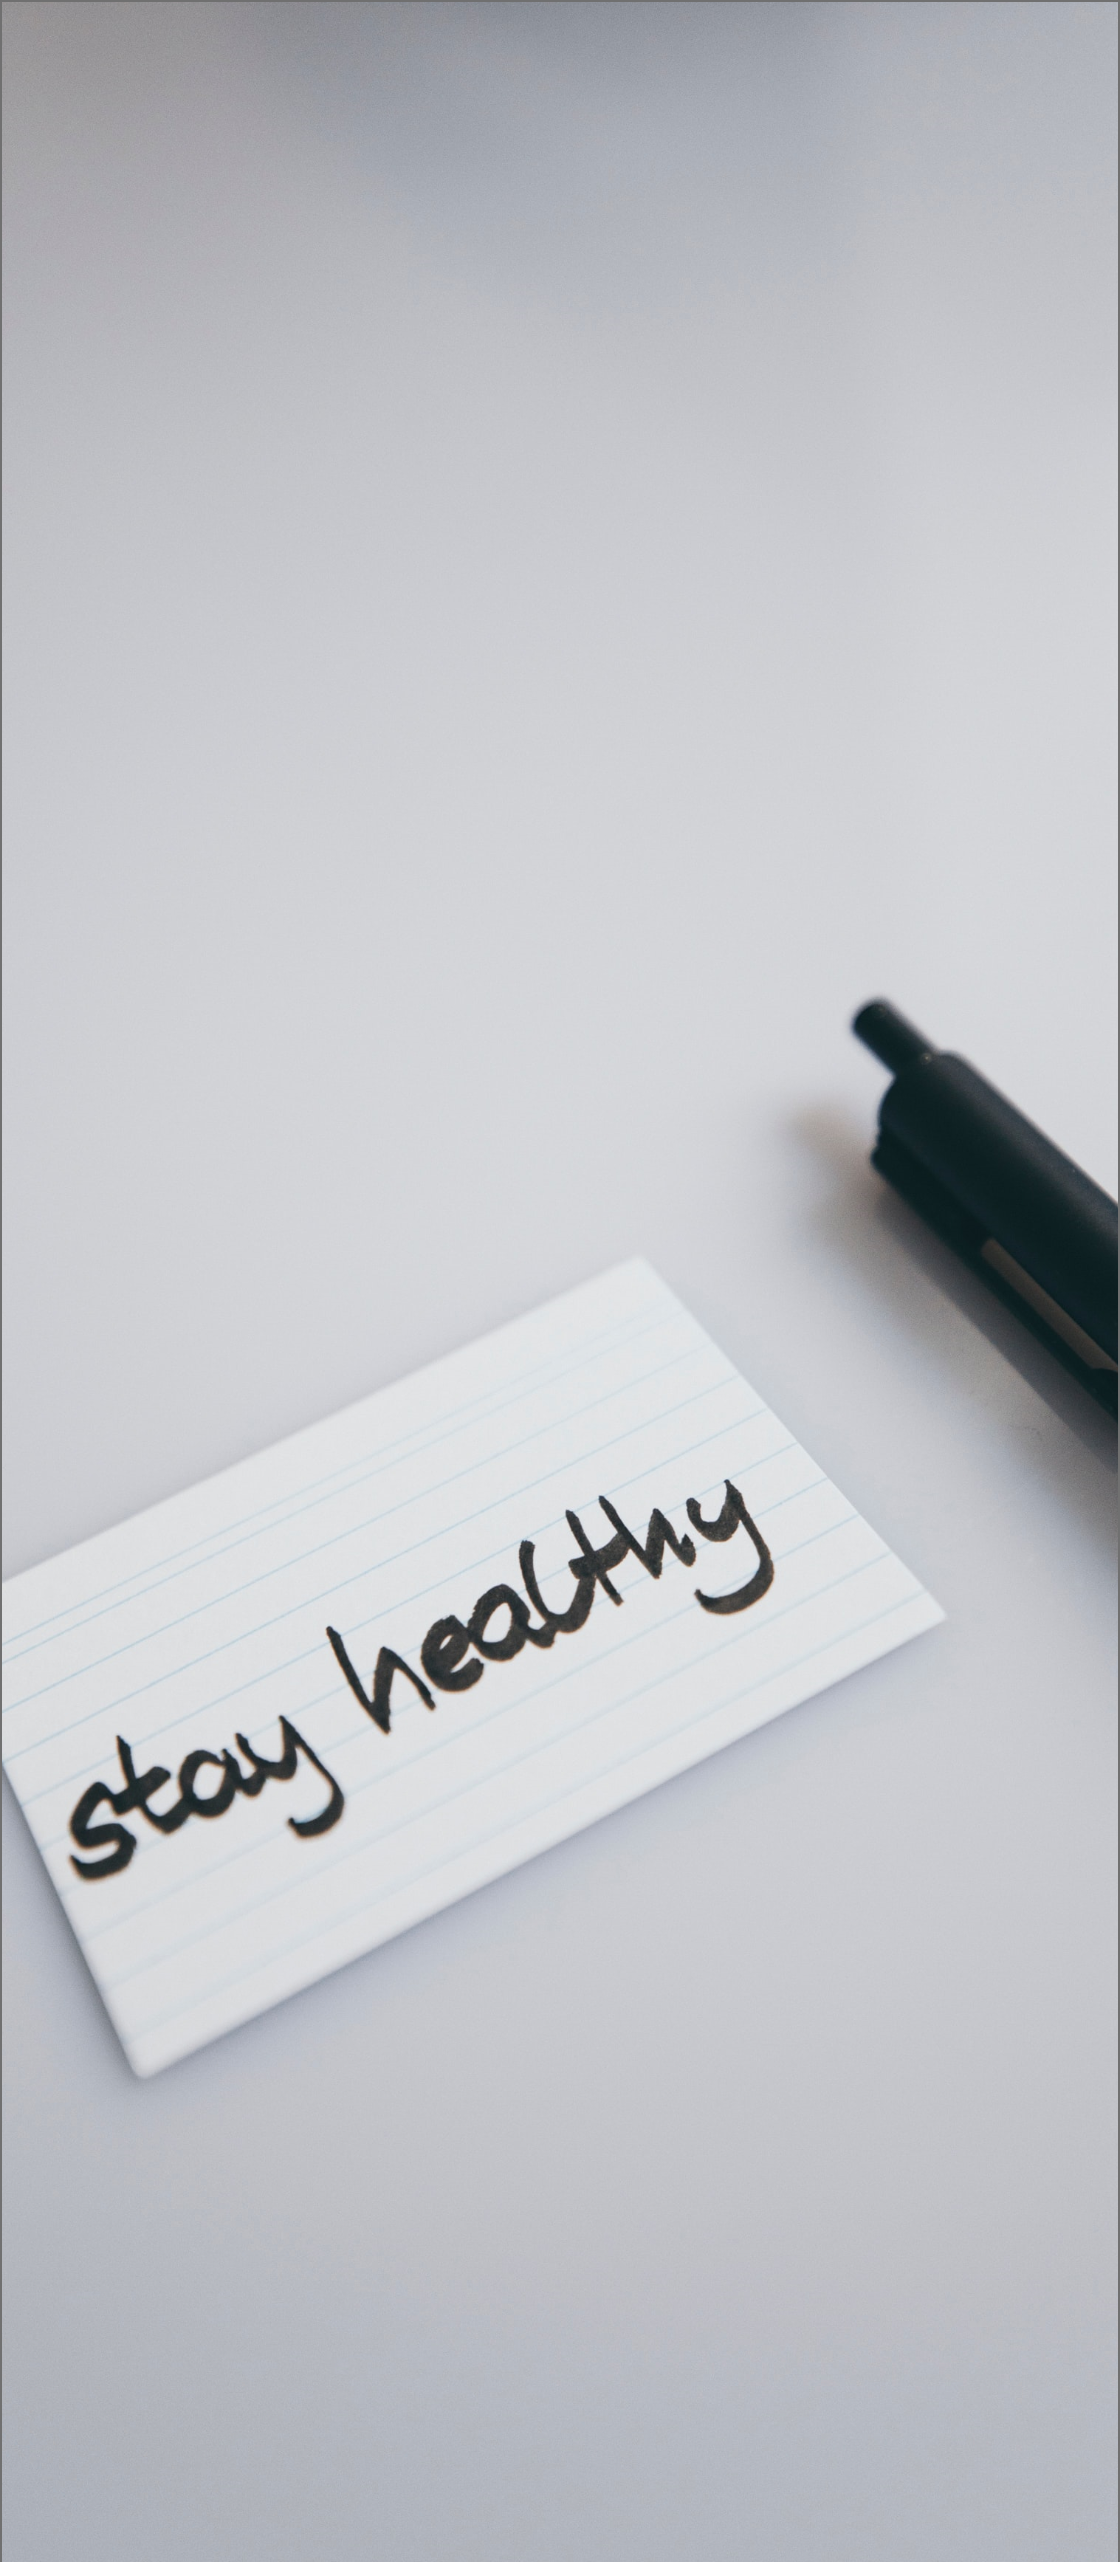 stay healthy